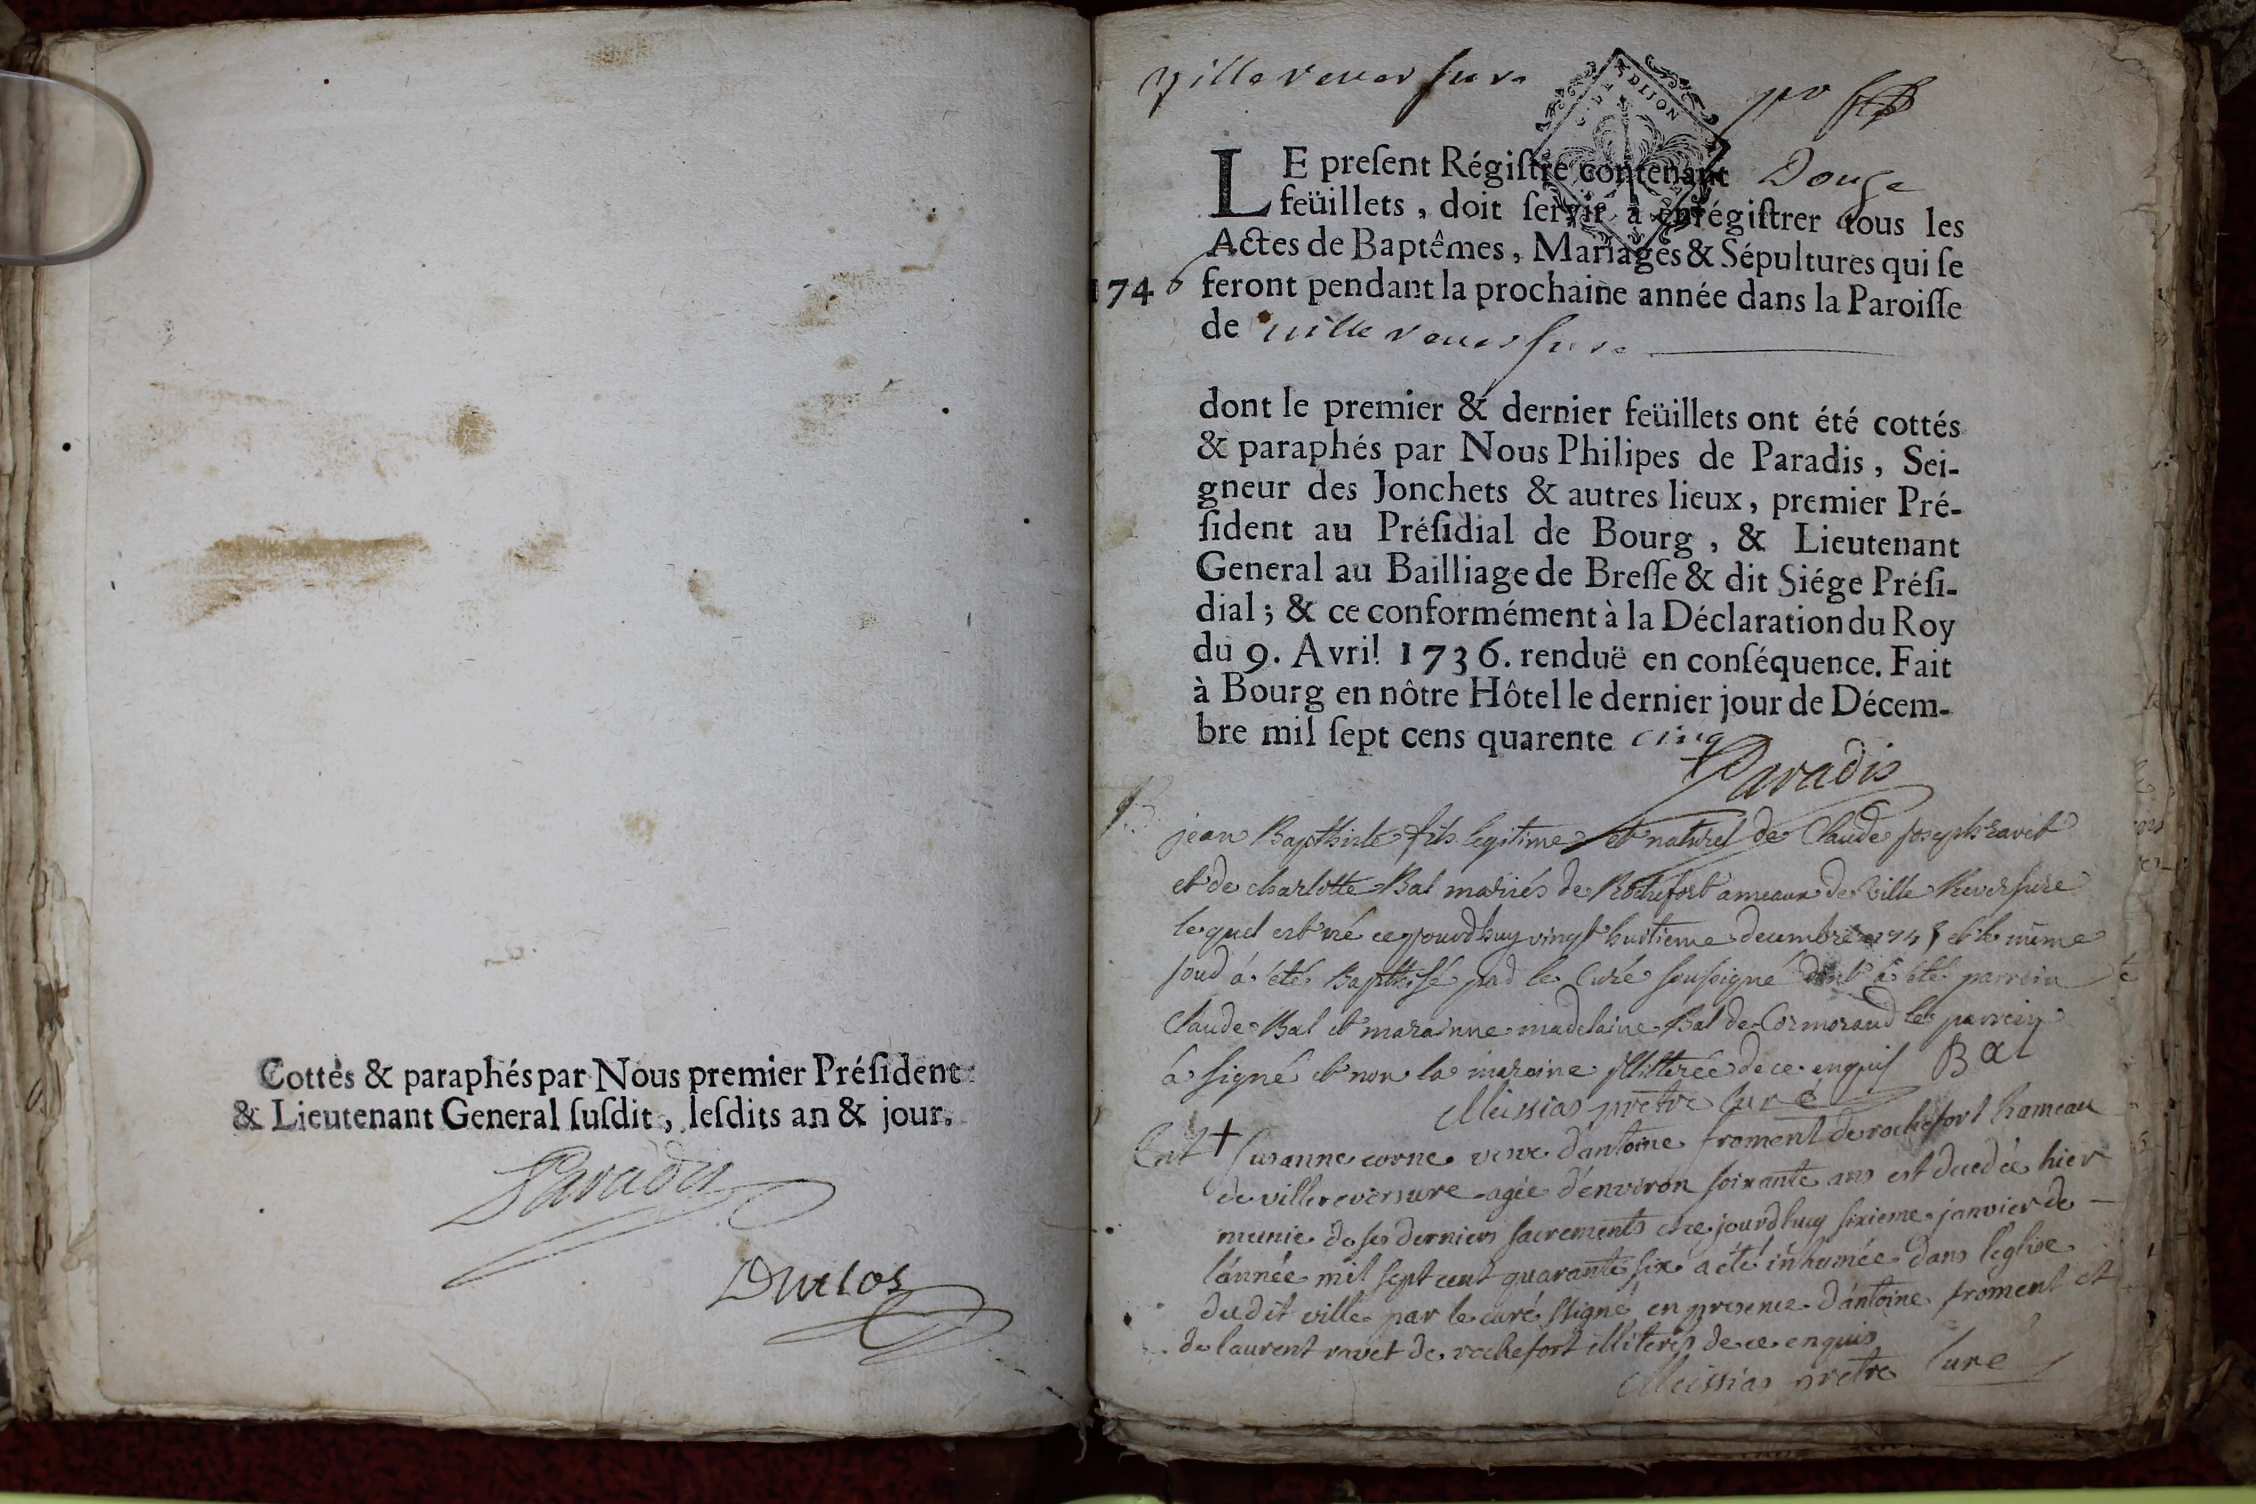 Cottés & paraphés par Nous premier Préſident
& Lieutenant General ſuſdit, leſdits an & jour.
Paradis
Duclos
Villereversure
DE DIJON
LE preſent Régiſtre contenant Douze
feüillets, doit ſervir à enrégiſtrer tous les
Actes de Baptêmes, Mariages & Sépultures qui ſe
1746 feront pendant la prochaine année dans la Paroiſſe
de villereversure
dont le premier & dernier feüillets ont été cottés
& paraphés par Nous Philipes de Paradis, Sei-
gneur des Jonchets & autres lieux, premier Pré-
ſident au Préſidial de Bourg, & Lieutenant
General au Bailliage de Breſſe & dit Siége Préſi-
dial; & ce conformément à la Déclaration du Roy
du 9. Avril 1736. renduë en conſéquence. Fait
à Bourg en nôtre Hôtel le dernier jour de Décem-
bre mil ſept cens quarente cinq
Paradis
B
jean Bapthiste fils legitime et naturel de Claude joseph ravet
et de charlotte Bal mariés de Rochefort ameaux de Ville Reversure
lequel est né cejourdhuy vingt huitieme decembre 1745 et le même
jour á été Bapthisé par le Curé soussigné dont á été parrein
Claude Bal et maraine madelaine Bal de Cormoraud le parrein
á signé et non la maraine illiterée de ce enquis Bal
Meissias pretre curé
Ent + Susanne corne veuve d'antoine froment de rochefort hameau
de villereversure agée d'environ soixante ans est decedée hier
munie de ses derniers sacrements et ce jourdhuy sixieme janvier de
l'année mil sept cent quarante six a été inhumée dans l'eglise
dudit ville par le curé ssigné en presence d'antoine froment et
de laurent ravet de rochefort illiterés de ce enquis
Meissias pretre curé